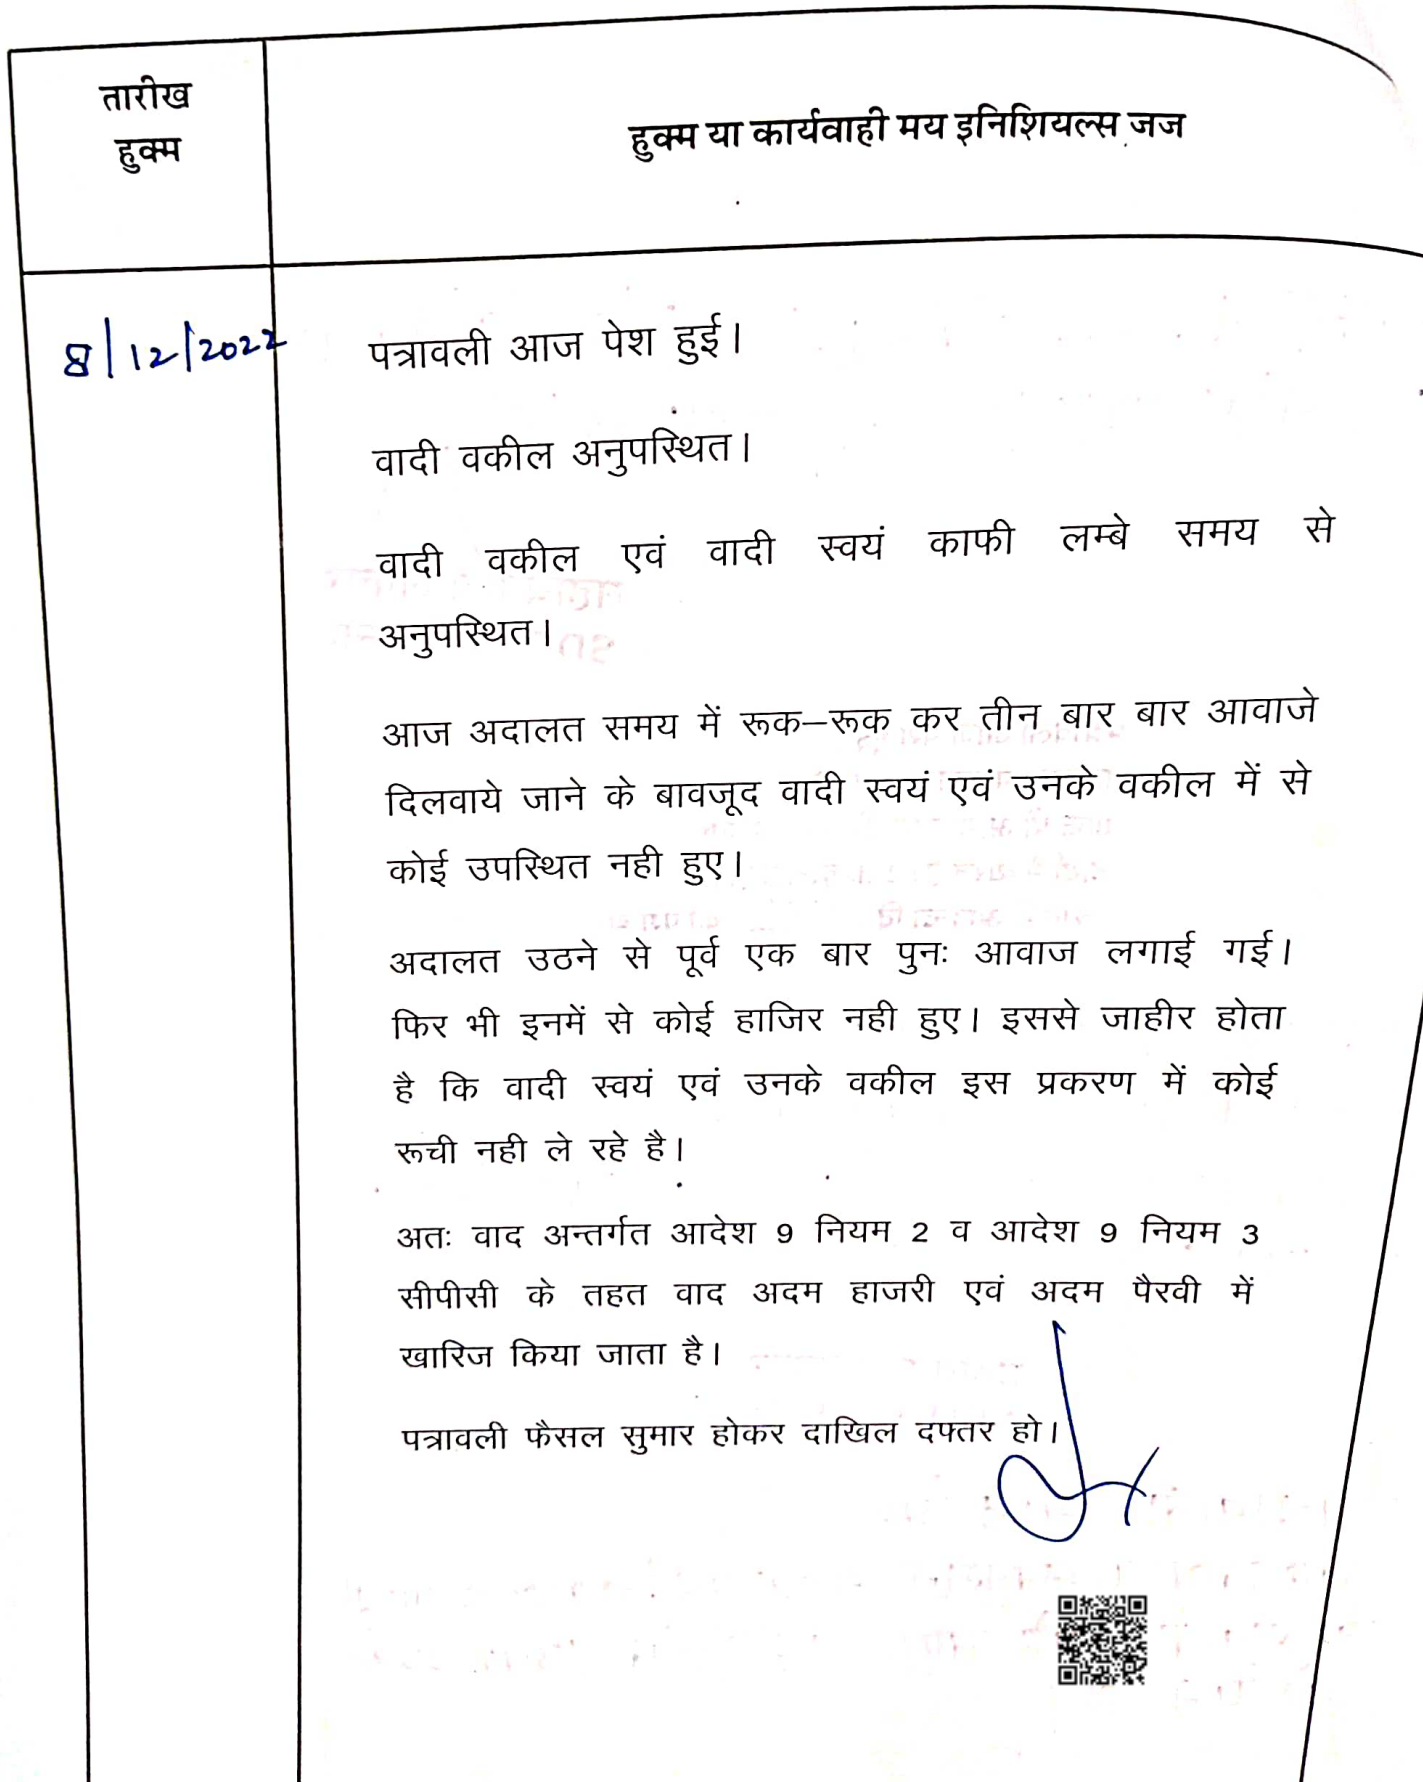 तारीख
हुक्म
हुक्म या कार्यवाही मय इनिशियल्स जज
8/12/2022
पत्रावली आज पेश हुई।
वादी वकील अनुपस्थित।
वादी वकील एवं वादी स्वयं काफी लम्बे समय से
अनुपस्थित।
आज अदालत समय में रूक–रूक कर तीन बार बार आवाजे
दिलवाये जाने के बावजूद वादी स्वयं एवं उनके वकील में से
कोई उपस्थित नही हुए।
अदालत उठने से पूर्व एक बार पुनः आवाज लगाई गई।
फिर भी इनमें से कोई हाजिर नही हुए। इससे जाहीर होता
है कि वादी स्वयं एवं उनके वकील इस प्रकरण में कोई
रूची नही ले रहे है।
अतः वाद अन्तर्गत आदेश 9 नियम 2 व आदेश 9 नियम 3
सीपीसी के तहत वाद अदम हाजरी एवं अदम पैरवी में
खारिज किया जाता है।
पत्रावली फैसल सुमार होकर दाखिल दफ्तर हो।